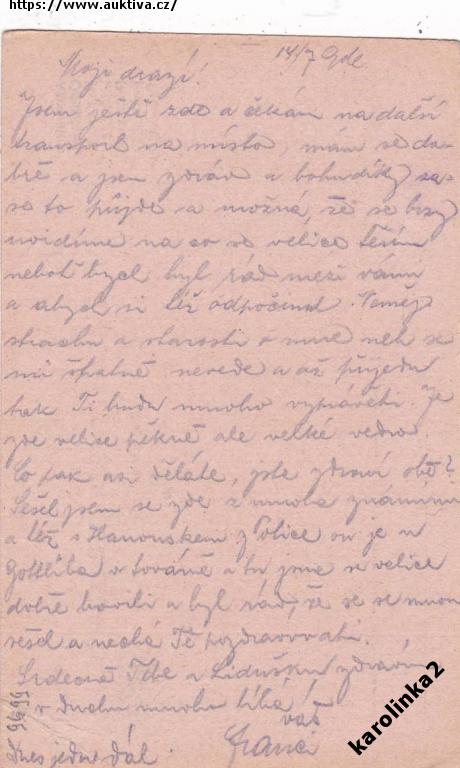 https://www.auktiva.cz/
14/7
Moji drazí!
Jsem ještě zde a čekám na další
transport na místo, mám se do-
bře a jsem zdráv a bohudíky za-
se to půjde a možná, že se brzy
uvidíme na co se velice těším
neboť bych byl rád mezi vámi
a abych si též odpočinul. Neměj
strachu a starosti o mne neb se
mi špatně nevede a až přijedu
tak Ti budu mnoho vyprávěti. Je
zde velice pěkně ale velké vedro.
Co pak asi děláte, jste zdraví obě?
Sešel jsem se zde z mnoha známými
a též s Hanouskem z Police on je u
Gottliba v továrně a tu jsme se velice
dobře bavili a byl rád, že se se mnou
sešel a nechá Tě pozdravovati.
Srdečně Tebe a Lidušku zdravím
v duchu mnoho líbá!
váš
Dnes jedu dál.
9699
karolinka2